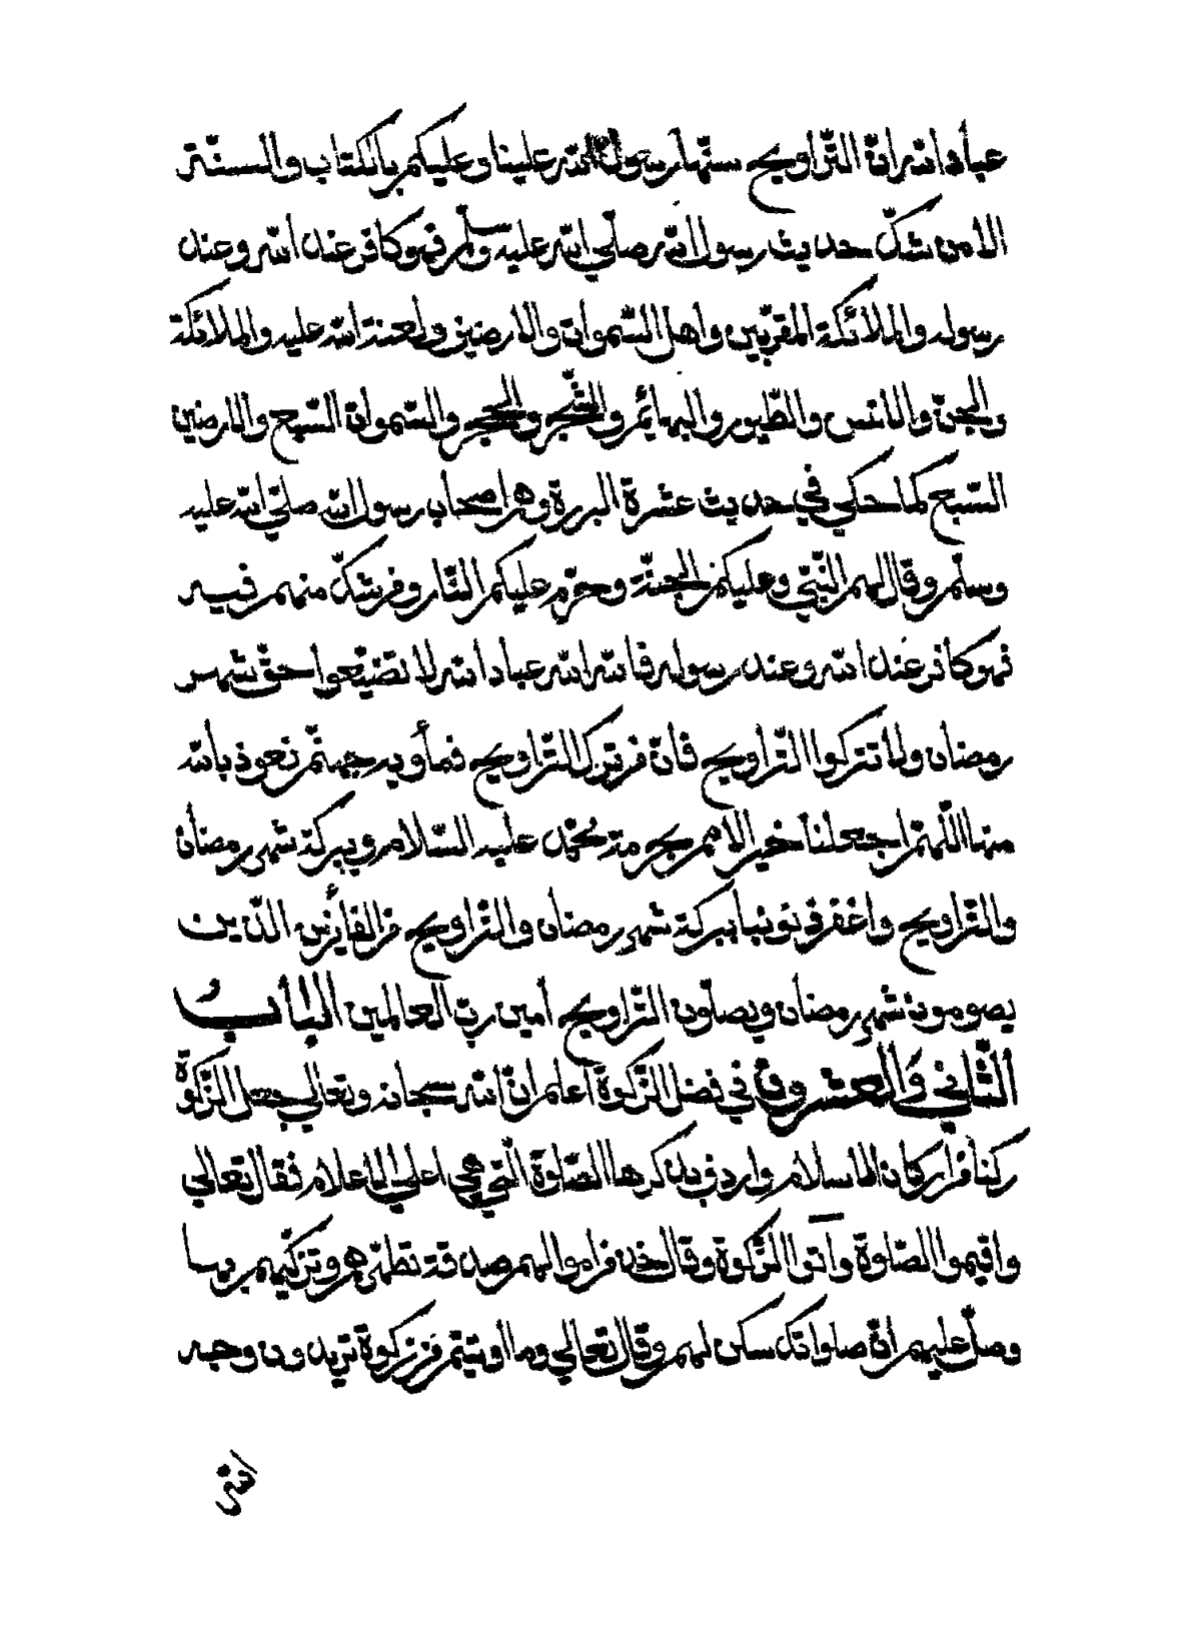 عباد الله انّ التّراويح سنّها رسول الله علينا وعليكم بالكتاب والسنّة
الا من شكّ حديث رسول الله صلّي الله عليه وسلّم فهو كافر عند الله وعند
رسوله والملائكة المقرّبين واهل السّموات والارضين ولعنة الله عليه والملائكة
والجنّ والانس والطّيور والبهائم والشّجر والحجر والسّموات السّبع والارضين
السّبع كما حكي في حديث عشرة البررة وهم اصحاب رسول الله صلّي الله عليه
وسلّم وقال لهم النّبيّ وعليكم الجنّة وحرّم عليكم النّار ومن شكّ منهم فيه
فهو كافر عند الله وعند رسوله فالله الله عباد الله لا تضيّعوا حقّ شهر
رمضان ولا تتركوا التّراويح فانّ من ترك التّراويح فمأويه جهنّم نعوذ بالله
منها اللّهمّ اجعلنا خير الامم بحرمة محمّد عليه السّلام وببركة شهر رمضان
والتّراويح واغفر ذنوبنا ببركة شهر رمضان والتّراويح من الفائزين الّذين
يصومون شهر رمضان ويصلّون التّراويح أمين ربّ العالمين البابُ
الثّاني وَالعشرون في فضل الزّكوة اعلم انّ الله سبحانه وتعالي جعل الزّكوة
ركنا من اركان الاسلام واردف بذكرها الصّلوة الّتي هي اعلي الاعلام فقال تعالي
واقيموا الصّلوة وآتوا الزّكوة وقال خذ من اموالهم صدقة تطهّرهم وتزكّيهم بها
وصلّ عليهم انّ صلواتك سكن لهم وقال تعالي وما أوتيتم من زكوة تريدون وجه
الله